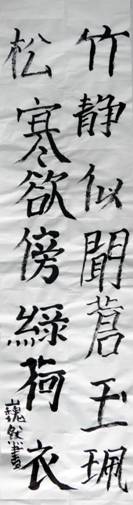 竹静似聞蒼玉珮
松寒欲傍緑荷衣
巍然書